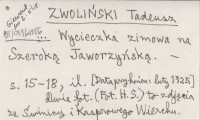 ZWOLIŃSKI Tadeusz
... Wycieczka zimowa na
Szeroką Jaworzyńską. –
s. 15–18, il. [Data przyb. na i luty 1925]
dwie fot. (Fot. H.S.) to zdjęcia
ze Świnicy i Kasprowego Wierchu.